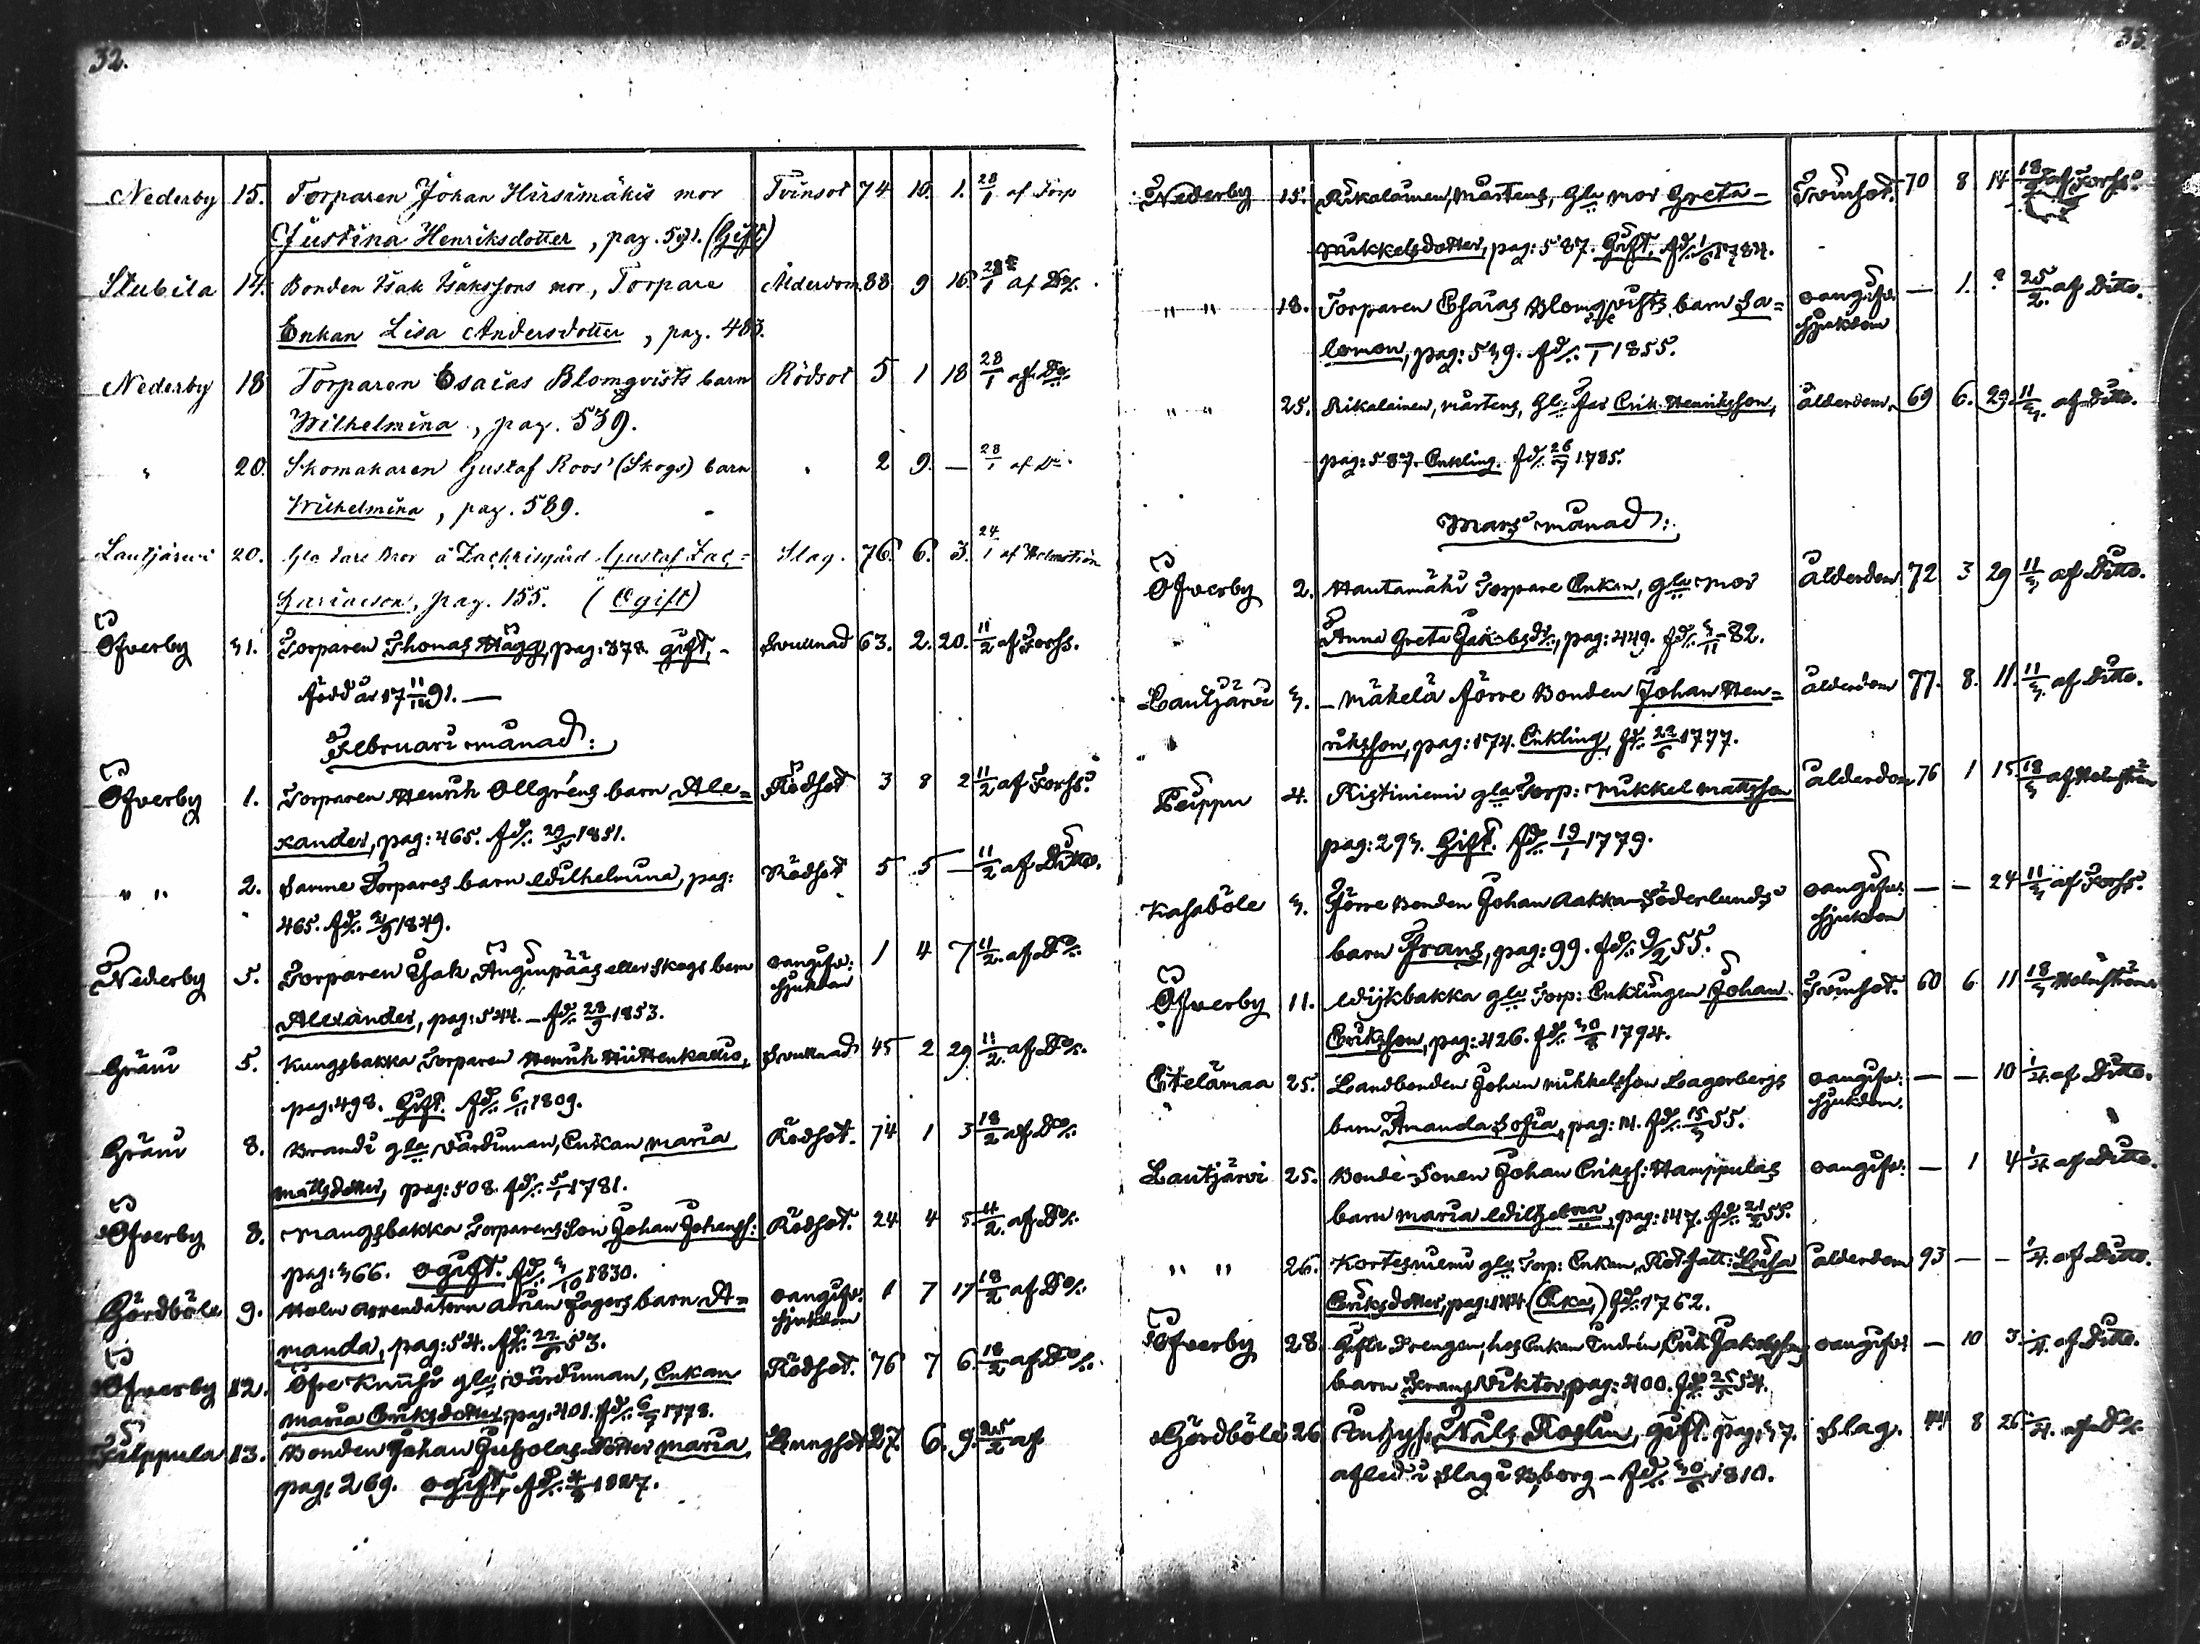 32.
Nederby 15. Torparen Johan Hirsimäkis mor Tvinsot 74 10. 1. 28/1 af Torp
Justina Henriksdotter, pag. 591. (Gift)
Stubila 14. Bonden Isak Isakssons mor, Torpare Ålderdom 88 9 16. 28/1 af Do/.
Enkan Lisa Andersdotter, pag. 483.
Nederby 18 Torparen Esaias Blomqvists barn Rödsot 5 1 18 28/1 af Do
Wilhelmina, pag. 539.
" 20. Skomakaren Gustaf Roos' (Skogs) barn " 2 9. — 28/1 af Do
Wilhelmina, pag. 589.
Lautjärwi 20. Gla dare bror å Zachrisgård Gustaf Zac= Slag. 76. 6. 3. 24/1 af Holmström
hariaeson, pag. 155. (Ogift)
Öfverby 31. Torparen Thomas Hägg, pag: 378. gift, - Svullnad 63. 2. 20. 11/2 af Forss.
född år 17 11/11 91. —
Februari månad:
Öfverby 1. Torparen Henrik Ollgréns barn Ale= Rödsot 3 8 2 11/2 af Forss.
xander, pag: 465. fd/: 29/5 1851.
" " 2. Samme Torpares barn Wilhelmina, pag: Rödsot 5 5 — 11/2 af Ditto.
465. fd/: 2/9 1849.
Nederby 5. Torparen Isak Anginpääs eller Skogs barn oangifv: sjukdom 1 4 7 11/2. af Do/:
Alexander, pag: 544. — fd/: 28/9 1853.
Gräni 5. Kungsbakka Torparen Henrik Hüttenkallio, Svullnad 45 2 29. 11/2. af Do/:
pag: 498. Gift. fd/: 6/11 1809.
Gräni 8. Brandi gla värdinnan, Enkan Maria Rödsot. 74 1 3 18/2 af Do/:
Mattsdotter, pag: 508. fd/: 5/1 1781.
Öfverby 8. Mangsbakka Torparens Son Johan Johanss: Rödsot. 24 4 5 11/2. af Do/:
pag: 366. ogift. fd/: 3/10 1830.
Gördböle 9. Holm Arrendatorn Adrian Jagers barn A= oangifv: sjukdom 1 7 17 18/2 af Do/:
manda, pag: 54. fd/: 22/6 53.
Öfverby 12. Öfre Knihti gla värdinnan, Enkan Rödsot. 76 7 6. 18/2 af Do/:
Maria Eriksdotter, pag: 401. fd/: 6/7 1778.
Filppula 13. Bonden Johan Juholas dotter Maria, Lungsot 27. 6. 9. 25/2 af
pag: 269. ogift, fd/: 4/8 1827.
33.
Nederby 15. Rikalainen, Mårtens, Gla mor Greta — Tvinsot. 70 8 14 18/2 af Forss.
Mikkelsdotter, pag: 587. Gift. fd/: 1/6 1784.
" " 18. Torparen Esaias Blomqvists barn Sa= oangifv: sjukdom — 1. ? 25/2. af Ditto.
lomon, pag: 539. fd/: —/1 1855.
" " 25. Rikalainen, Mårtens, Gl: far Erik Henriksson, ålderdom. 69 6. 29. 11/3. af Ditto.
pag: 587. Enkling. fd/: 26/7 1785.
Mars månad:
Öfverby 2. Hautamäki Torpare Enkan, gla mor ålderdom 72 3 29 11/3 af Ditto.
Anna Greta Jakobsdr:, pag: 449. fd/: 3/11 82.
Lautjärvi 3. — Mäkelä förre Bonden Johan Hen= ålderdom 77. 8. 11. 11/3. af Ditto.
riksson, pag: 174. Enkling, fd: 22/6 1777.
Peippu 4. Ristiniemi gla Torp: Mikkel Mattsson ålderdom 76 1 15 18/3 af Holmström
pag: 293. Gift. fd/: 19/1 1779.
Kasaböle 3. Förre Bonden Johan Aakka-Söderlunds oangifv: sjukdom — — 24 11/3 af Forss.
barn Frans, pag: 99. fd/: 9/2 55.
Öfverby 11. Wijkbakka gla Torp: Enklingen Johan Tvinsot. 60 6 11 18/3 Holmström
Eriksson, pag: 426. fd/: 30/8 1794.
Etelämaa 25. Landbonden Johan Mikkelsson Lagerbergs oangifv: sjukdom. — — 10 1/4. af Ditto.
barn Amanda Sofia, pag: 11. fd/: 15/3 55.
Lautjärvi 25. Bonde-Sonen Johan Eriks: Hamppulas oangifv: — 1 4 1/4. af Ditto.
barn Maria Wilhelma, pag: 147. fd/: 21/2 55.
" " 26. Kortesniemi gla Torp: Enkan, Rotfatt: Lisa ålderdom 93 — — 1/4. af Ditto.
Eriksdotter, pag: 144. fd/: 1762.
Öfverby 28. Gifte Drengen, hos Enkan Erik Jakobssons oangifv: — 10 3 1/4. af Ditto.
barn Frans Viktor, pag: 400. fd/: 25/5 54.
Gördböle 26. Nils Roslin, gift. pag: 37. Slag. 44 8 26 1/4. af Do/:
afled i Slag i W:borg — fd/: 30/6 1810.